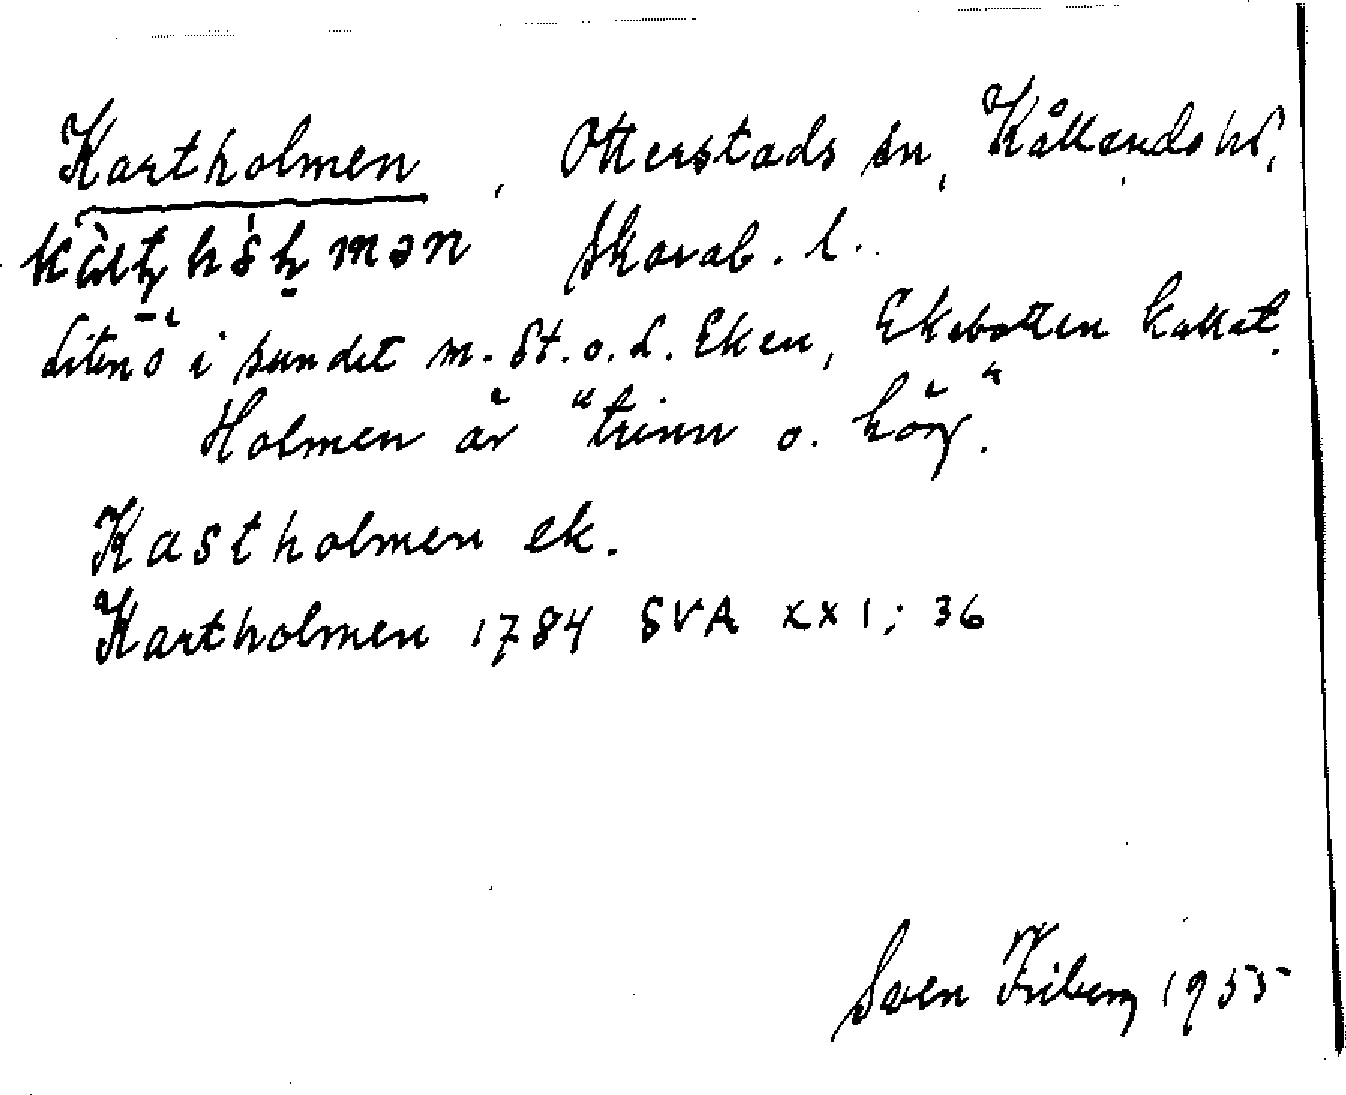 Kartholmen, Otterstads sn, Kållands hd,
Skarab. l.
Liten ö i sundet m. St. o. L. Eken, Ekebotten kallat.
Holmen är "trinn o. hög".
Kastholmen ek.
Kartholmen 1784 SVA XXI; 36
Sven Friberg 1955